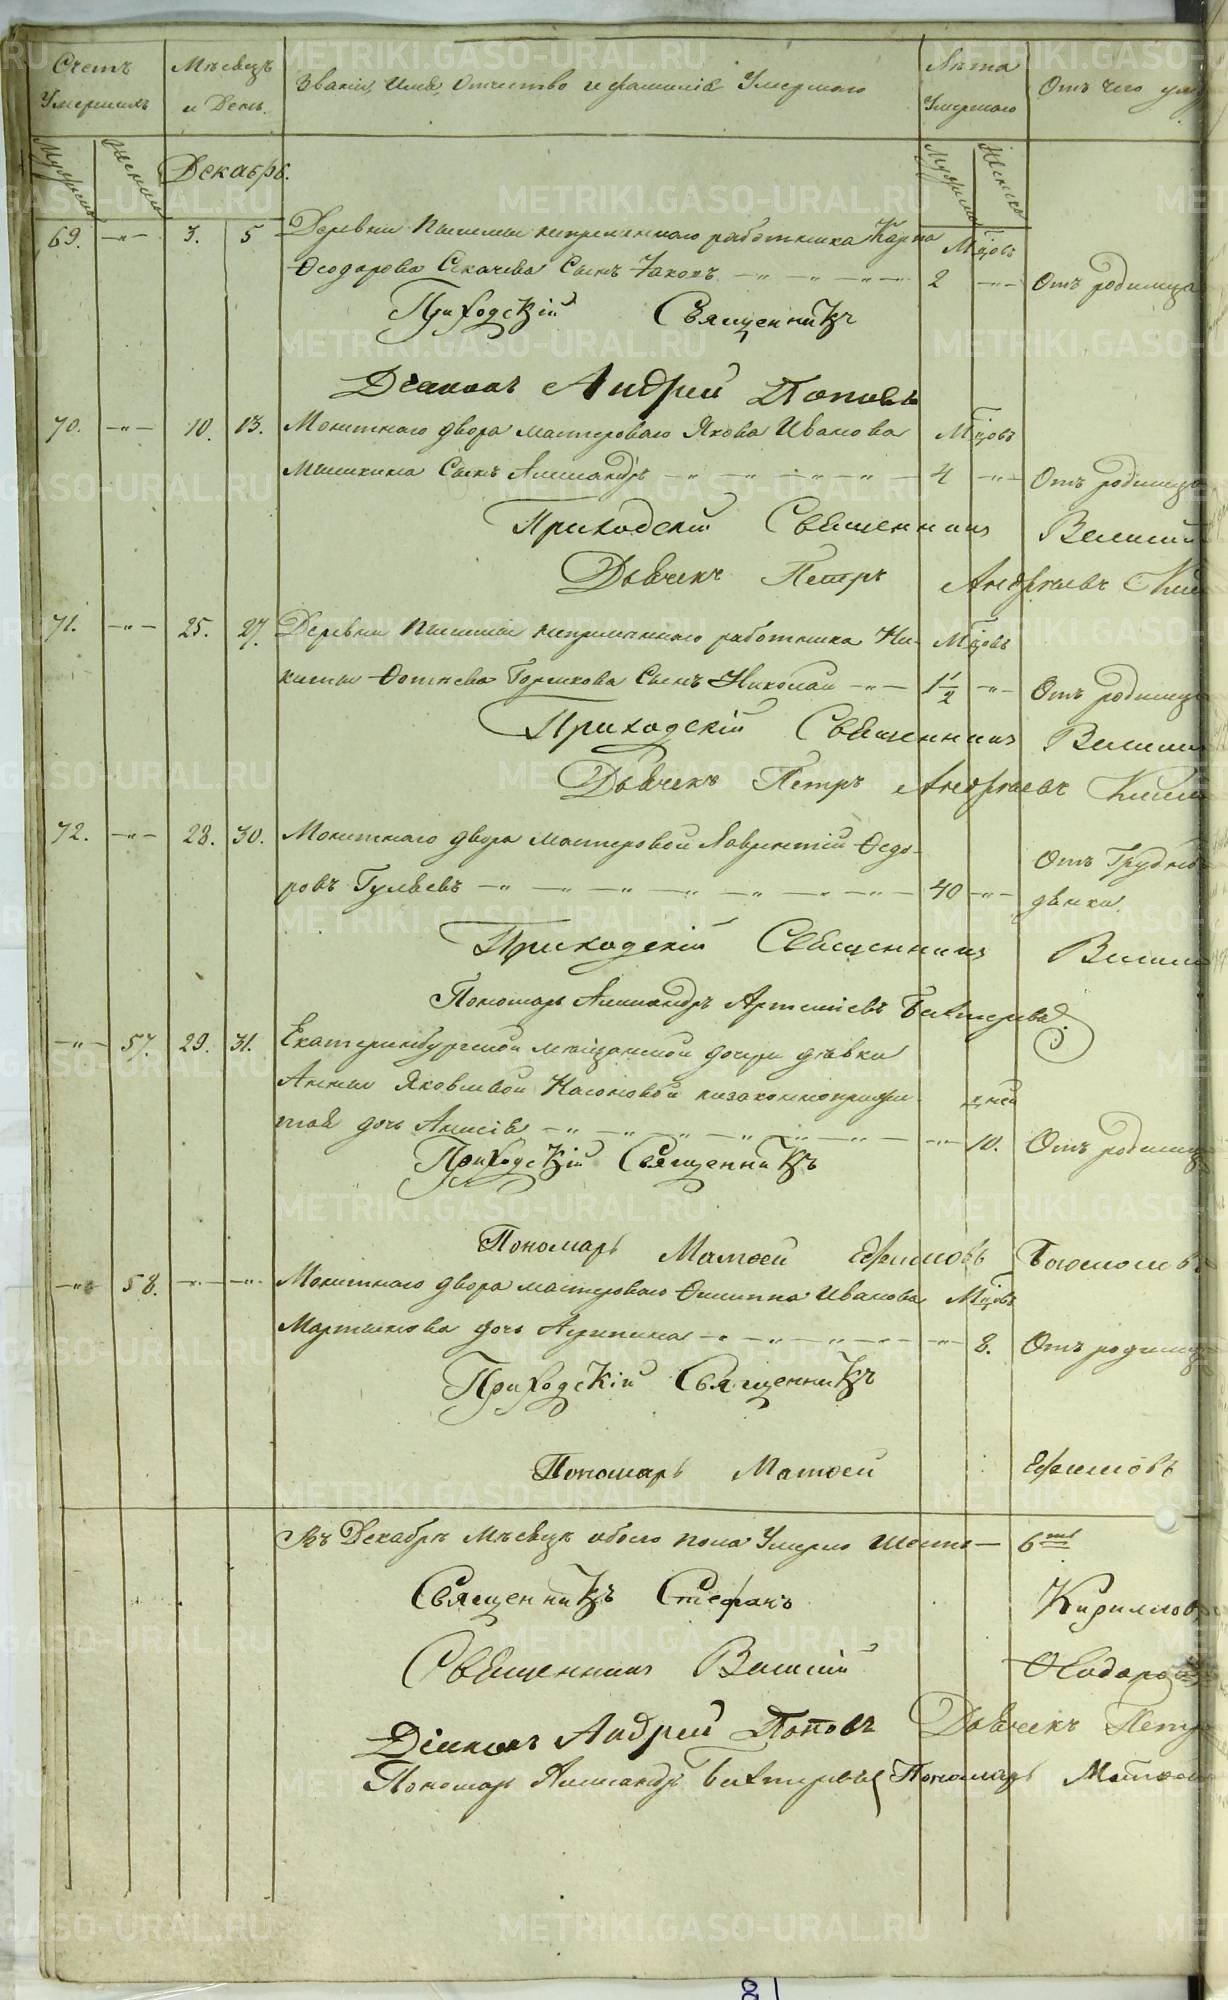 Счетъ Мѣсяцъ Званiе, Имя, Отчество и фамилiя Умершаго Лѣта Отъ чего
Умершихъ и День. Умершаго
Мужескъ Женскъ Декабрь. Мужескъ Женскъ
69. —〃— 3. 5 Деревни непремѣннаго работника Карпа Мѣсяцовъ
Ѳеодорова Секачева Сынъ Iаковъ —〃—〃—〃— 2 —〃— Отъ родимца
Приходскiй Священникъ
Дiаконъ Андрей Поповъ
70. —〃— 10. 13. Монетнаго двора мастероваго Якова Иванова Мѣсяцовъ
Сынъ Александръ —〃—〃—〃—〃— 4 —〃— Отъ родимца
Приходскiй Священникъ Василiй
Дьячекъ Петръ Андреевъ
71. —〃— 25. 27. Деревни непремѣннаго работника Ни- Мѣсяцовъ
киты Фотѣева Горшкова Сынъ Николай —〃— 1½ —〃— Отъ родимца
Приходскiй Священникъ Василiй
Дьячекъ Петръ Андреевъ
72. —〃— 28. 30. Монетнаго двора мастеровой Лаврентiй Ѳедо-
ровъ Гуляевъ —〃—〃—〃—〃—〃— 40 —〃— Отъ Грудной
Приходскiй Священникъ Василiй
Пономарь Александръ Артемiевъ Бахтеревъ
—〃— 57. 29. 31. Екатеринбургской мѣщанской дочери дѣвки
Анны Яковлевой незаконноприжи- дней
тая дочь Анисiя —〃—〃—〃—〃—〃— 10. Отъ родимца
Приходскiй Священникъ
Пономарь Матѳей Ефимовъ Богомоловъ
—〃— 58. —〃— —〃— Монетнаго двора мастероваго Филиппа Иванова Мѣсяцовъ
Мартынова дочь Агрипина —〃—〃—〃— 8. Отъ родимца
Приходскiй Священникъ
Пономарь Матѳей Ефимовъ
Въ Декабрѣ Мѣсяцѣ обоего пола Умерло шесть — 6ть
Священникъ Стефанъ Кирилловъ
Священникъ Василiй Ѳеодоровъ
Дiаконъ Андрей Поповъ Дьячекъ Петръ
Пономарь Александръ Бахтеревъ Пономарь Матѳей
METRIKI.GASO-URAL.RU